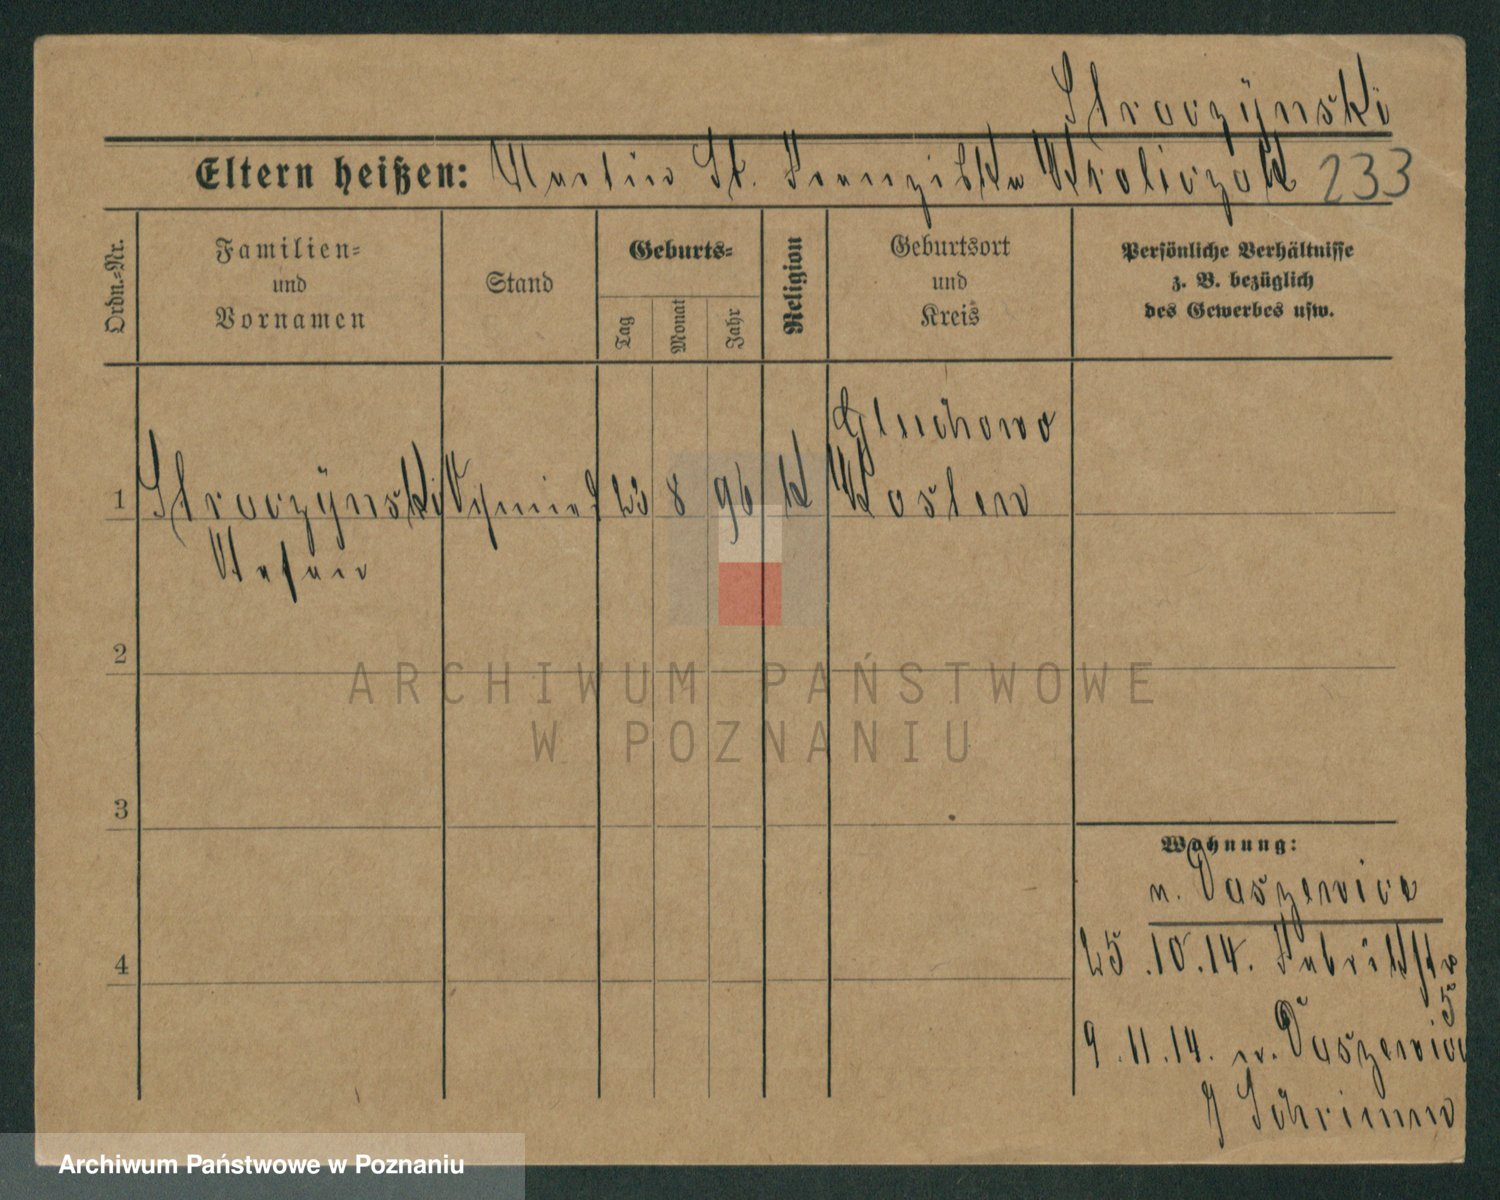 Stroczÿnski
Eltern heißen: Martin St. Franziska Kroliczak 233
Ordn.-Nr.
Familien-
und
Vornamen
Stand
Geburts-
Tag
Monat
Jahr
Religion
Geburtsort
und
Kreis
Persönliche Verhältnisse
z. B. bezüglich
des Gewerbes usw.
Gluchowo
1 Stroczÿnski 23 8 96 K Kosten
Stefan
2
ARCHIWUM PAŃSTWOWE
W POZNANIU
3
4
Wohnung:
n. Daszewice
25.10.14. Fabrikstr
5
9.11.14. n. Daszewice
Schrimm
Archiwum Państwowe w Poznaniu